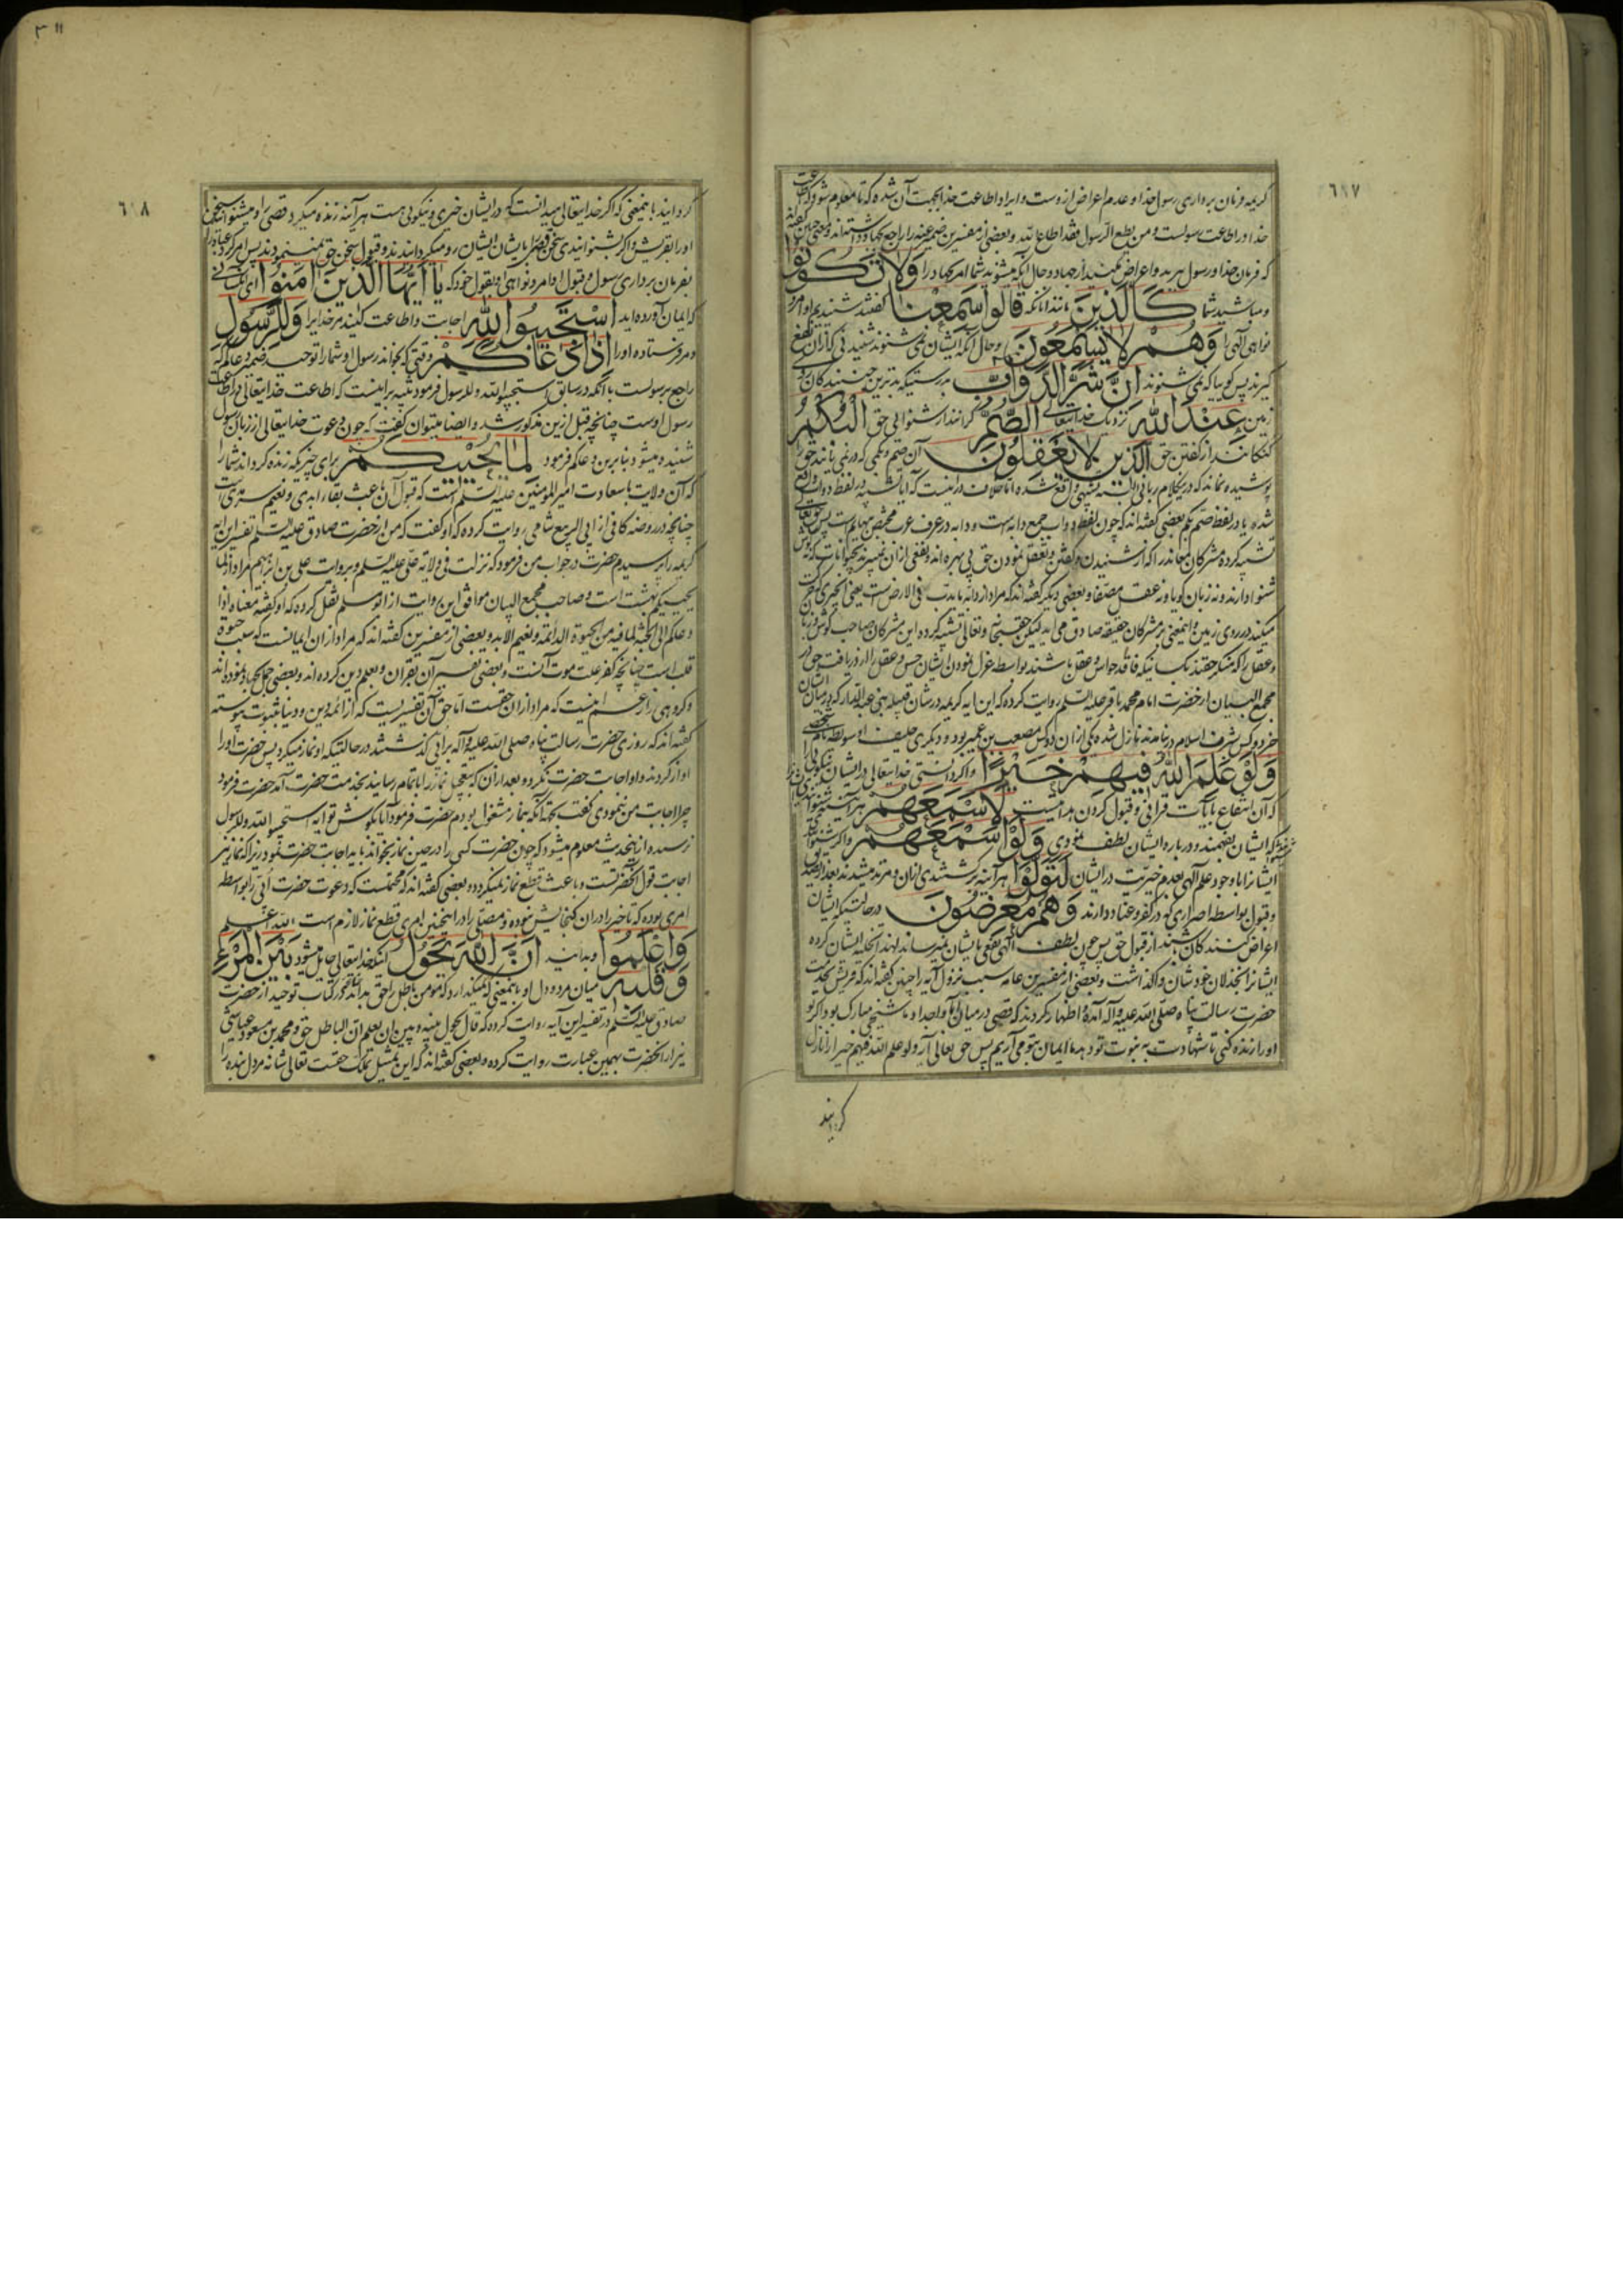 ٦١٧
کریمه فرمان برداری رسول خدا و عدم اعراض ازوست و ایراد اطاعت خدا بجهت آن شده که تا معلوم شود که اطاعت
خدا در اطاعت رسولست و من یطع الرسول فقد اطاع الله و بعضی از مفسرین ضمیر عنه را راجع بجهاد داشته‌اند و گفته‌اند
که فرمان خدا و رسول برید و اعراض مکنید از جهاد و حال آنکه میشنوید شما امر بجهاد را وَلَا تَكُونُوا
و مباشید شما كَالَّذِينَ مانند آنانکه قَالُوا سَمِعْنَا گفتند شنیدیم اوامر و
نواهی الهی را وَهُمْ لَا يَسْمَعُونَ و حال آنکه ایشان نمی شنوند شنیدنی که از آن نفع
گیرند پس گویا که نمی شنوند إِنَّ شَرَّ الدَّوَابِّ بدرستیکه بدترین جنبندگان روی
زمین عِنْدَ اللَّهِ نزدیک خدایتعالی الصُّمُّ کرانند از شنوائی حق الْبُكْمُ
گنگانند از گفتن حق الَّذِينَ لَا يَعْقِلُونَ آن صم و بکمی که در نمی یابند حق را
پوشیده نماند که درین کلام ربانی البته تشبیهی واقع شده اما خلاف در اینست که آیا تشبیه در لفظ دواب واقع
شده یا در لفظ صم بکم بعضی گفته‌اند که چون لفظ دواب جمع دابه است و دابه در عرف عرب مختص ببهایم است پس حقتعالی
تشبیه کرده مشرکان معاند را که از شنیدن و گفتن و تعقل نمودن حق بی بهره‌اند و نفعی از آن نمیبرند بحیوانات که گوش
شنوا دارند و نه زبان گویا و نه عقل مصفا و بعضی دیگر گفته‌اند که مراد از دابه ما یدب فی الارض است یعنی آنچیزی که حرکت
میکند در روی زمین و اینمعنی بر مشرکان حقیقة صادق می آید لیکن حقسبحانه و تعالی تشبیه کرده این مشرکان صاحب گوش و زبان
و عقل را که منکر حقند بکسانیکه فاقد حواس و عقل باشند بواسطه عزل نمودن ایشان حس و عقل را از دریافت حق در
مجمع البیان از حضرت امام محمد باقر علیه السلم روایت کرده که این آیه کریمه در شان قبیله بنی عبدالدار که در میان ایشان
جز دو کس بشرف اسلام در نیامدند نازل شده یکی از آن دو کس مصعب بن عمیر بود و دیگری حلیف او سویط نام شخصی
وَلَوْ عَلِمَ اللَّهُ فِيهِمْ خَيْرًا و اگر دانستی خدایتعالی در ایشان نیکوئی را
که آن انتفاع بآیات قرآنی و قبول کردن هدایت است لَأَسْمَعَهُمْ هر آینه شنوانیدی ایشان را
که ایشان بفهمند و درباره ایشان لطف نمودی وَلَوْ أَسْمَعَهُمْ و اگر شنوانیدی
ایشانرا با وجود علم آلهی بعدم خیریت در ایشان لَتَوَلَّوْا هر آینه برگشتندی از آن و مرتد میشدند بعد از تصدیق
و قبول بواسطه اصراری که در کفر و عناد دارند وَهُمْ مُعْرِضُونَ در حالتیکه ایشان
اعراض کنندگان باشند از قبول حق پس چون لطف الهی نفعی بایشان نمیرساند لهذا تخلیه ایشان کرده
ایشانرا بخذلان خودشان واگذاشت و بعضی از مفسرین عامه سبب نزول آیه را چنین گفته‌اند که قریش بخدمت
حضرت رسالت پناه صلی الله علیه و آله آمده اظهار کردند که قصی در میان آباء و اجداد ما شیخی مبارک بود اگر تو
او را زنده کنی تا شهادت به نبوت تو دهد ما ایمان بتو می آریم پس حق تعالی آیه و لو علم الله فیهم خیرا را نازل
گردانید
٣١١
٦١٨
گردانید باینمعنی که اگر خدایتعالی میدانست که در ایشان خیری و نیکوئی هست هر آینه زنده میکرد قصی را و میشنوانید سخن
او را بقریش و اگر بشنوانیدی سخن قصی را بایشان ایشان رو میگردانیدند و قبول سخن حق نمینمودند پس امر کرد عباد را
بفرمان برداری رسول و قبول اوامر و نواهی او بقول خود که يَا أَيُّهَا الَّذِينَ آمَنُوا ای کسانی
که ایمان آورده‌اید اسْتَجِيبُوا لِلَّهِ اجابت و اطاعت کنید مر خدایرا وَلِلرَّسُولِ
و مر فرستاده او را إِذَا دَعَاكُمْ وقتی که بخواند رسول او شما را توحید ضمیر دعاکم که
راجع برسولست با آنکه در سابق استجیبوا لله و للرسول فرمود تنبیه بر اینست که اطاعت خدایتعالی در اطاعت
رسول اوست چنانچه قبل ازین مذکور شد و ایضا میتوان گفت که چون دعوت خدایتعالی از زبان رسول
شنیده میشود بنابرین دعاکم فرمود لِمَا يُحْيِيكُمْ برای چیزیکه زنده گرداند شما را
که آن ولایت با سعادت امیرالمومنین علیه السلم است که قبول آن باعث بقاء ابدی و نعیم سرمدی است
چنانچه در روضه کافی از ابی الربیع شامی روایت کرده که او گفت که من از حضرت صادق علیه السلم تفسیر این آیه
کریمه را پرسیدم حضرت در جواب من فرمود که نزلت فی ولایة علی علیه السلم و بروایت علی بن ابرهیم مراد از لما
یحییکم بهشت است و صاحب مجمع البیان موافق این روایت از ابو مسلم نقل کرده که او گفته معناه اذا
دعاکم الی الجنة لما فیه من الحیوة الدائمة و نعیم الابد و بعضی از مفسرین گفته‌اند که مراد از آن ایمانست که سبب حیوة
قلب است چنانچه کفر علت موت آنست و بعضی تفسیر آن بقرآن و بعلم دین کرده‌اند و بعضی حمل بجهاد نموده‌اند
و گروهی را زعم اینست که مراد از آن حقست اما حق آن تفسیریست که از ائمه دین و دنیا بثبوت پیوسته
گفته‌اند که روزی حضرت رسالت پناه صلی الله علیه و آله بر ابی گذشتند در حالتیکه او نماز میکرد پس حضرت او را
آواز کردند و او اجابت حضرت نکرد و بعد از آن که بتعجیل نماز را باتمام رسانید بخدمت حضرت آمد حضرت فرمود
چرا اجابت من ننمودی گفت بجهة آنکه بنماز مشغول بودم حضرت فرمود آیا بگوش تو آیه استجیبوا لله و للرسول
نرسیده ازینحدیث معلوم میشود که چون حضرت کسی را در حین نماز بخواند باید اجابت حضرت نمود زیرا که نماز نیز
اجابت قول آنحضرتست و باعث قطع نماز نمیگردد و بعضی گفته‌اند که محتملست که دعوت حضرت ابی را بواسطه
امری بوده که تاخیر را در آن گنجایش نبوده و مصلی را در اینچنین امری قطع نماز لازم است الله اعلم
وَاعْلَمُوا و بدانید أَنَّ اللَّهَ يَحُولُ آنکه خدایتعالی حایل میشود بَيْنَ الْمَرْءِ
وَقَلْبِهِ میان مرد و دل او باینمعنی که نمیگذارد که مومن باطل را حق بداند در کتاب توحید از حضرت
صادق علیه السلم در تفسیر این آیه روایت کرده که قال یحول بینه و بین ان یعلم ان الباطل حق و محمد بن مسعود عیاشی
نیز از آنحضرت بهمین عبارت روایت کرده و بعضی گفته‌اند که این تمثیل تملک حقست تعالی شانه مر دل بنده را